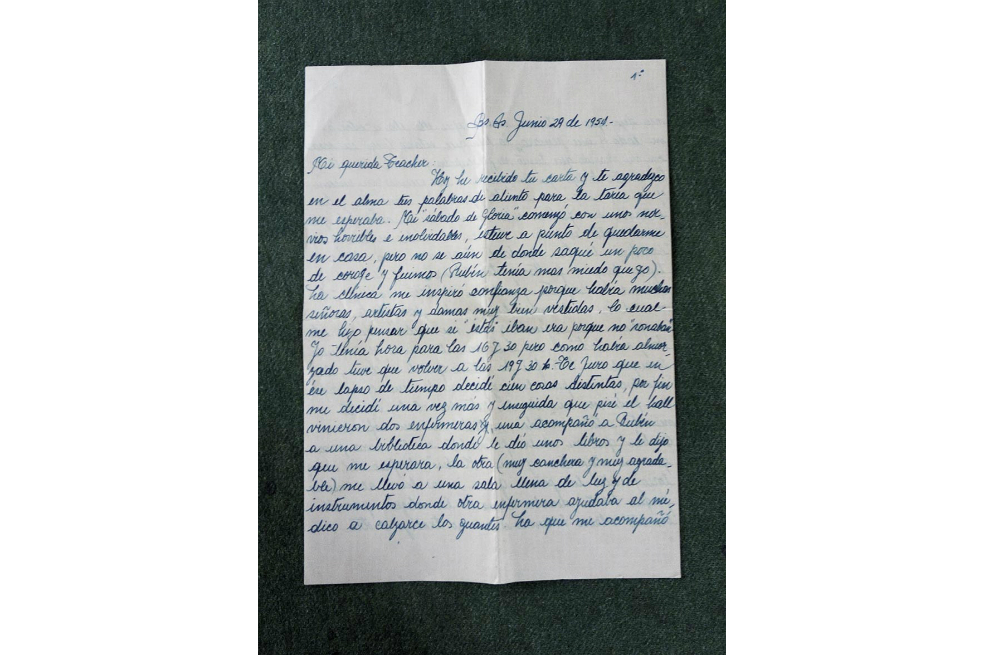 1º
Bs As. Junio 29 de 1950.-
Mi querida Teacher
Hoy he recibido tu carta y te agradezco
en el alma tus palabras de aliento para la taria que
me esperaba. Mi "sábado de Gloria" comenzó con unos ner-
vios horribles e inolvidables, estuve a punto de quedarme
en casa, pero no se aún de donde saqué un poco
de coraje y fuimos (Rubén tenía mas miedo que yo).
La clínica me inspiró confianza porque había muchas
señoras, artistas y damas muy bien vestidas, lo cual-
me hizo pensar que si "estas" iban era porque no "sonaban"
Yo tenía hora para las 16 y 30 pero como había almor-
zado tuve que volver a las 19 y 30 h. Te Juro que en
ése lapso de tiempo decidí cien cosas distintas, por fin
me decidí una vez más y enseguida que pisé el hall
vinieron dos enfermeras y una acompañó a Rubén
a una biblioteca donde le dió unos libros y le dijo
que me esperara, la otra (muy canchera y muy agrada-
ble) me llevó a una sala llena de luz y de
instrumentos donde otra enfermera ayudaba al mé-
dico a calzarce los guantes. La que me acompañó